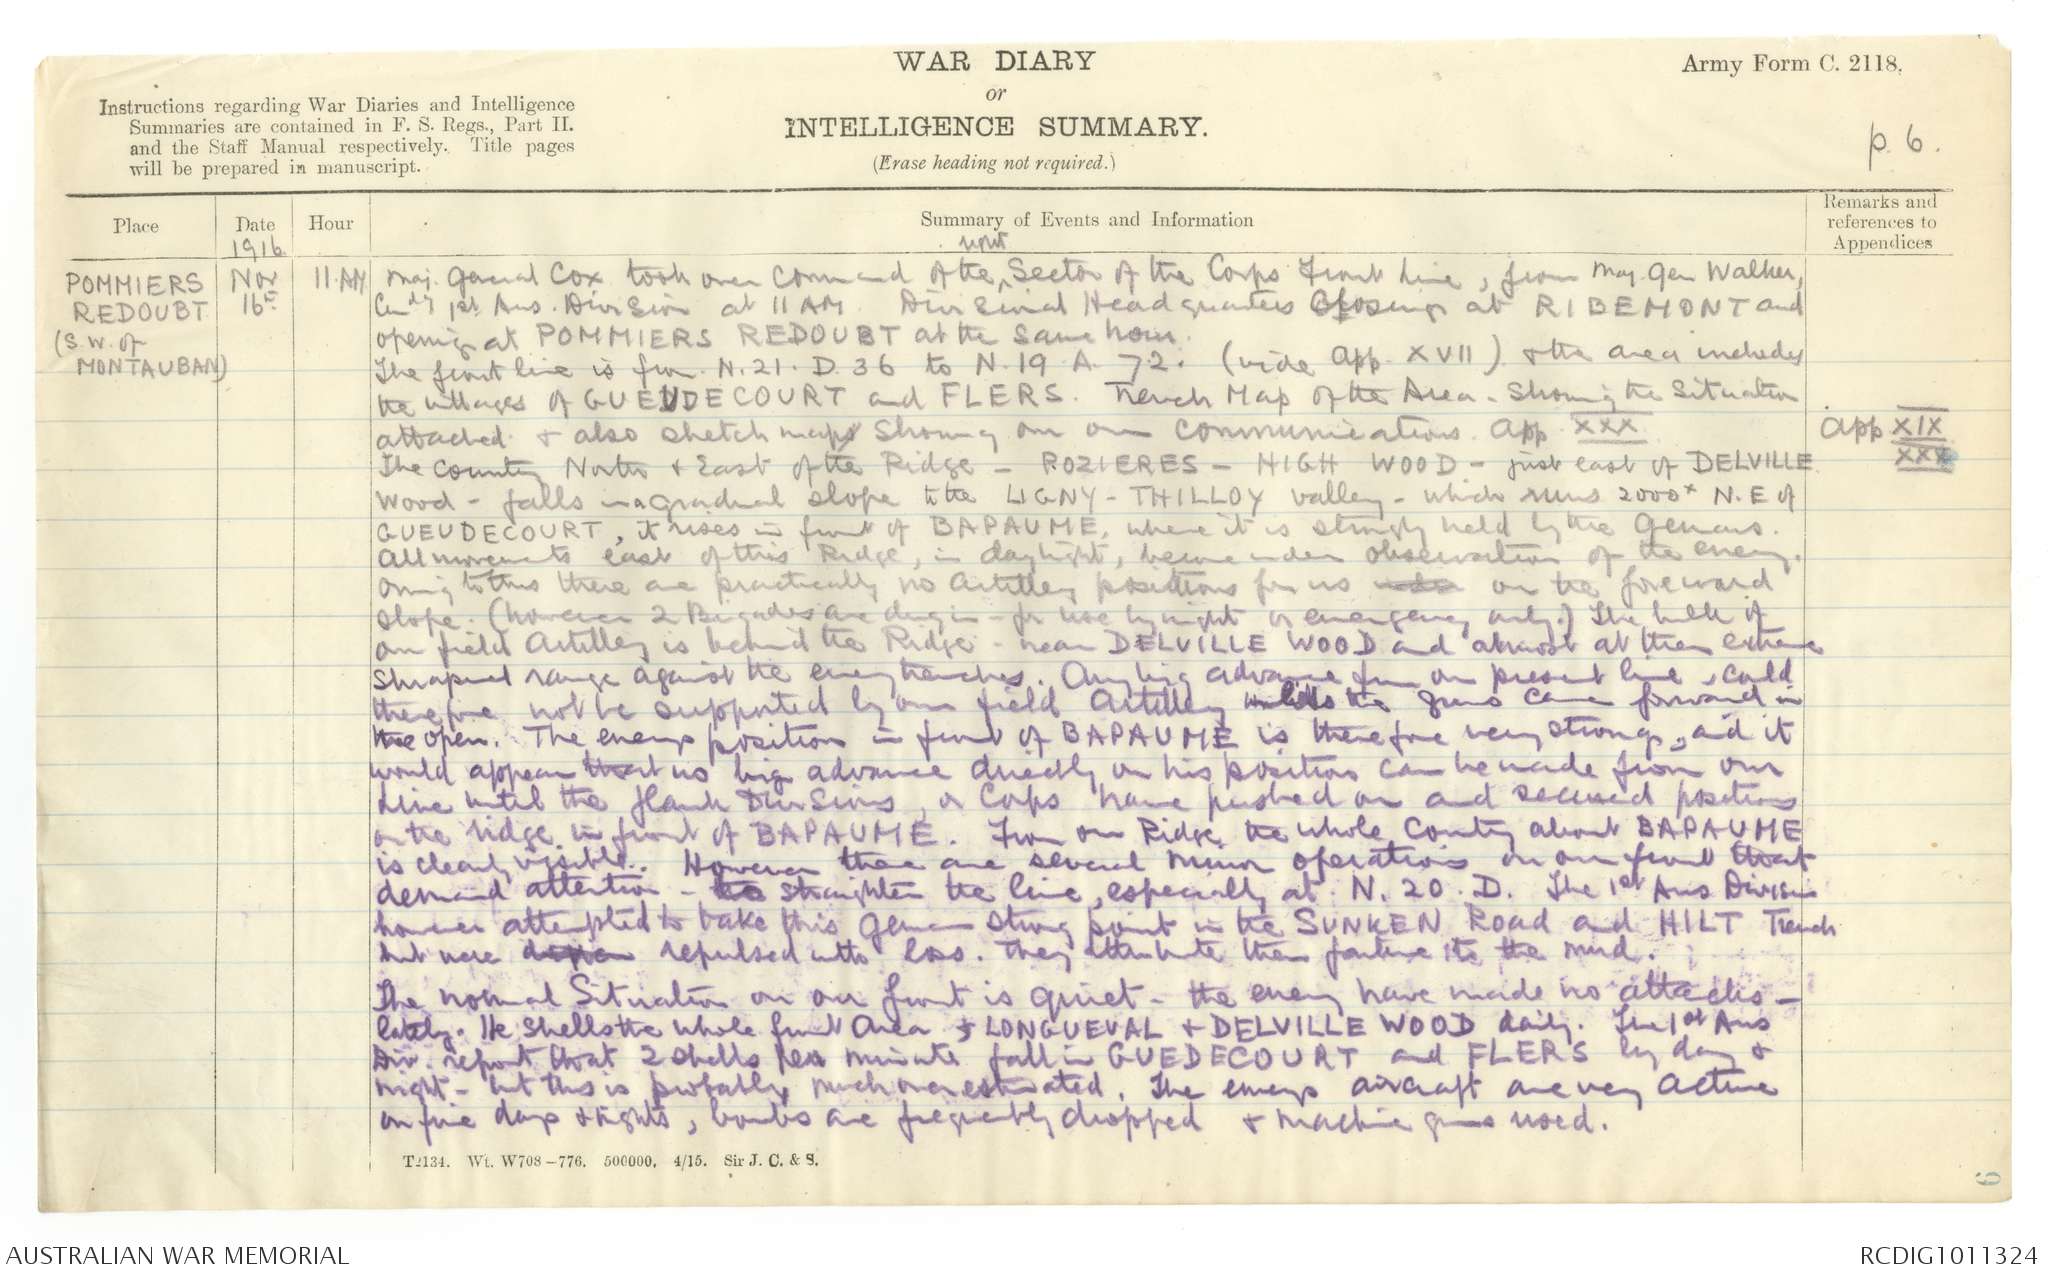 WAR DIARY
or
INTELLIGENCE SUMMARY.
(Erase heading not required.)
Army Form C. 2118.
p. 6.
Instructions regarding War Diaries and Intelligence
Summaries are contained in F. S. Regs., Part II.
and the Staff Manual respectively. Title pages
will be prepared in manuscript.
Place
Date
Hour
Summary of Events and Information
Remarks and
references to
Appendices
1916
POMMIERS
REDOUBT
(S.W. of
MONTAUBAN)
Nov
16th
11.AM
right
Maj. General Cox took over Command of the Sector of the Corps Front Line, from Maj. Gen Walker,
Cmdg 1st Aus. Division at 11 AM. Divisional Headquarters closing at RIBEMONT and
opening at POMMIERS REDOUBT at the same hour.
The front line is from N.21.D.36 to N.19 A.72. (vide App. XVII) & the area includes
the villages of GUEUDECOURT and FLERS. Trench Map of the Area - showing the Situation
attached & also sketch maps showing our communications. App XXX
App XIX
XXX
The Country North & East of the Ridge - POZIERES - HIGH WOOD - just east of DELVILLE
Wood - falls in a gradual slope to the LIGNY-THILLOY valley - which runs 2000x N.E of
GUEUDECOURT, it rises in front of BAPAUME, where it is strongly held by the Germans.
All movements east of this Ridge, in daylight, become under observation of the enemy.
Owing to this there are practically no Artillery positions for us on the foreward
slope. (however 2 Brigades are dug in - for use by night or emergency only.) The bulk of
our field Artillery is behind the Ridge - near DELVILLE WOOD and almost at their extreme
shrapnel range against the enemy trenches. Any big advance from our present line, could
therefore not be supported by our field Artillery unless the guns came forward in
the open. The enemys position in front of BAPAUME is therefore very strong, and it
would appear that no big advance directly on his position can be made from our
Line until the flank Divisions, or Corps have pushed on and secured positions
on the ridge in front of BAPAUME. From our Ridge the whole Country about BAPAUME
is clearly visible. However there are several minor operations on our front that
demand attention - to straighten the line, especially at N.20.D. The 1st Aus Division
however attempted to take this German strong point in the SUNKEN ROAD and HILT Trench
but were repulsed with loss. They attribute their failure to the mud.
The normal Situation on our front is quiet - the enemy have made no attacks -
lately. He shells the whole front Area & LONGUEVAL & DELVILLE WOOD daily. The 1st Aus
Div. report that 2 shells per minute fall in GUEDECOURT and FLERS by day &
night - but this is probably much overestimated. The enemys aircraft are very active
on fine days & nights, bombs are frequently dropped & machine guns used.
T2134. Wt. W708-776. 500000. 4/15. Sir J. C. & S.
6
AUSTRALIAN WAR MEMORIAL
RCDIG1011324